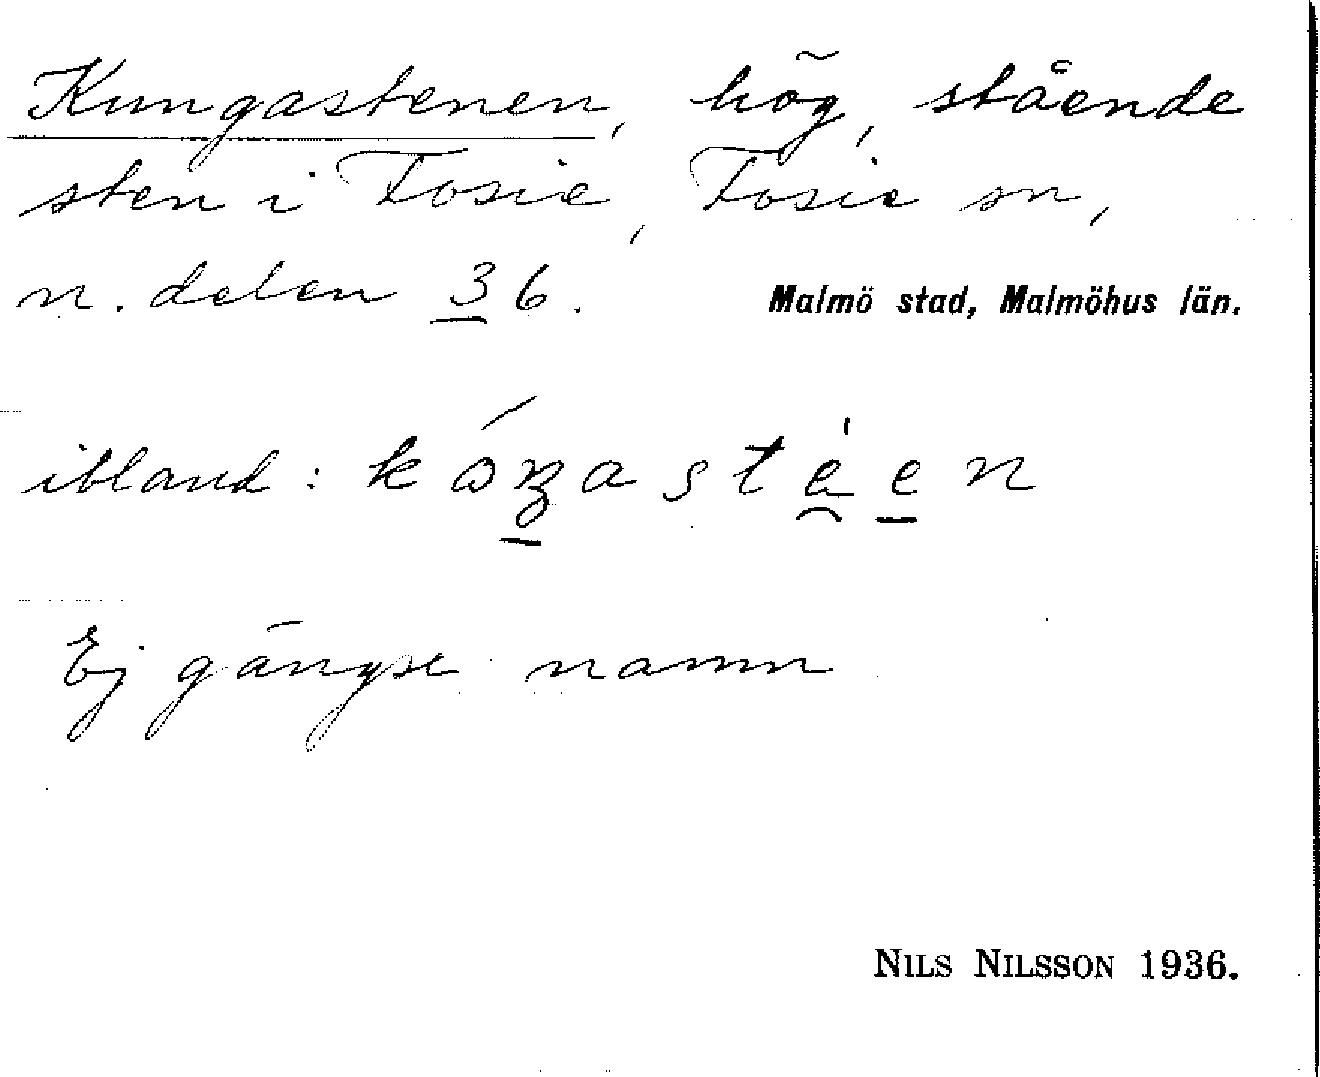 Kungastenen, hög, stående
sten i Fosie, Fosie sn,
n. delen 36.
Malmö stad, Malmöhus län.
ibland:
Ej gängse namn
NILS NILSSON 1936.